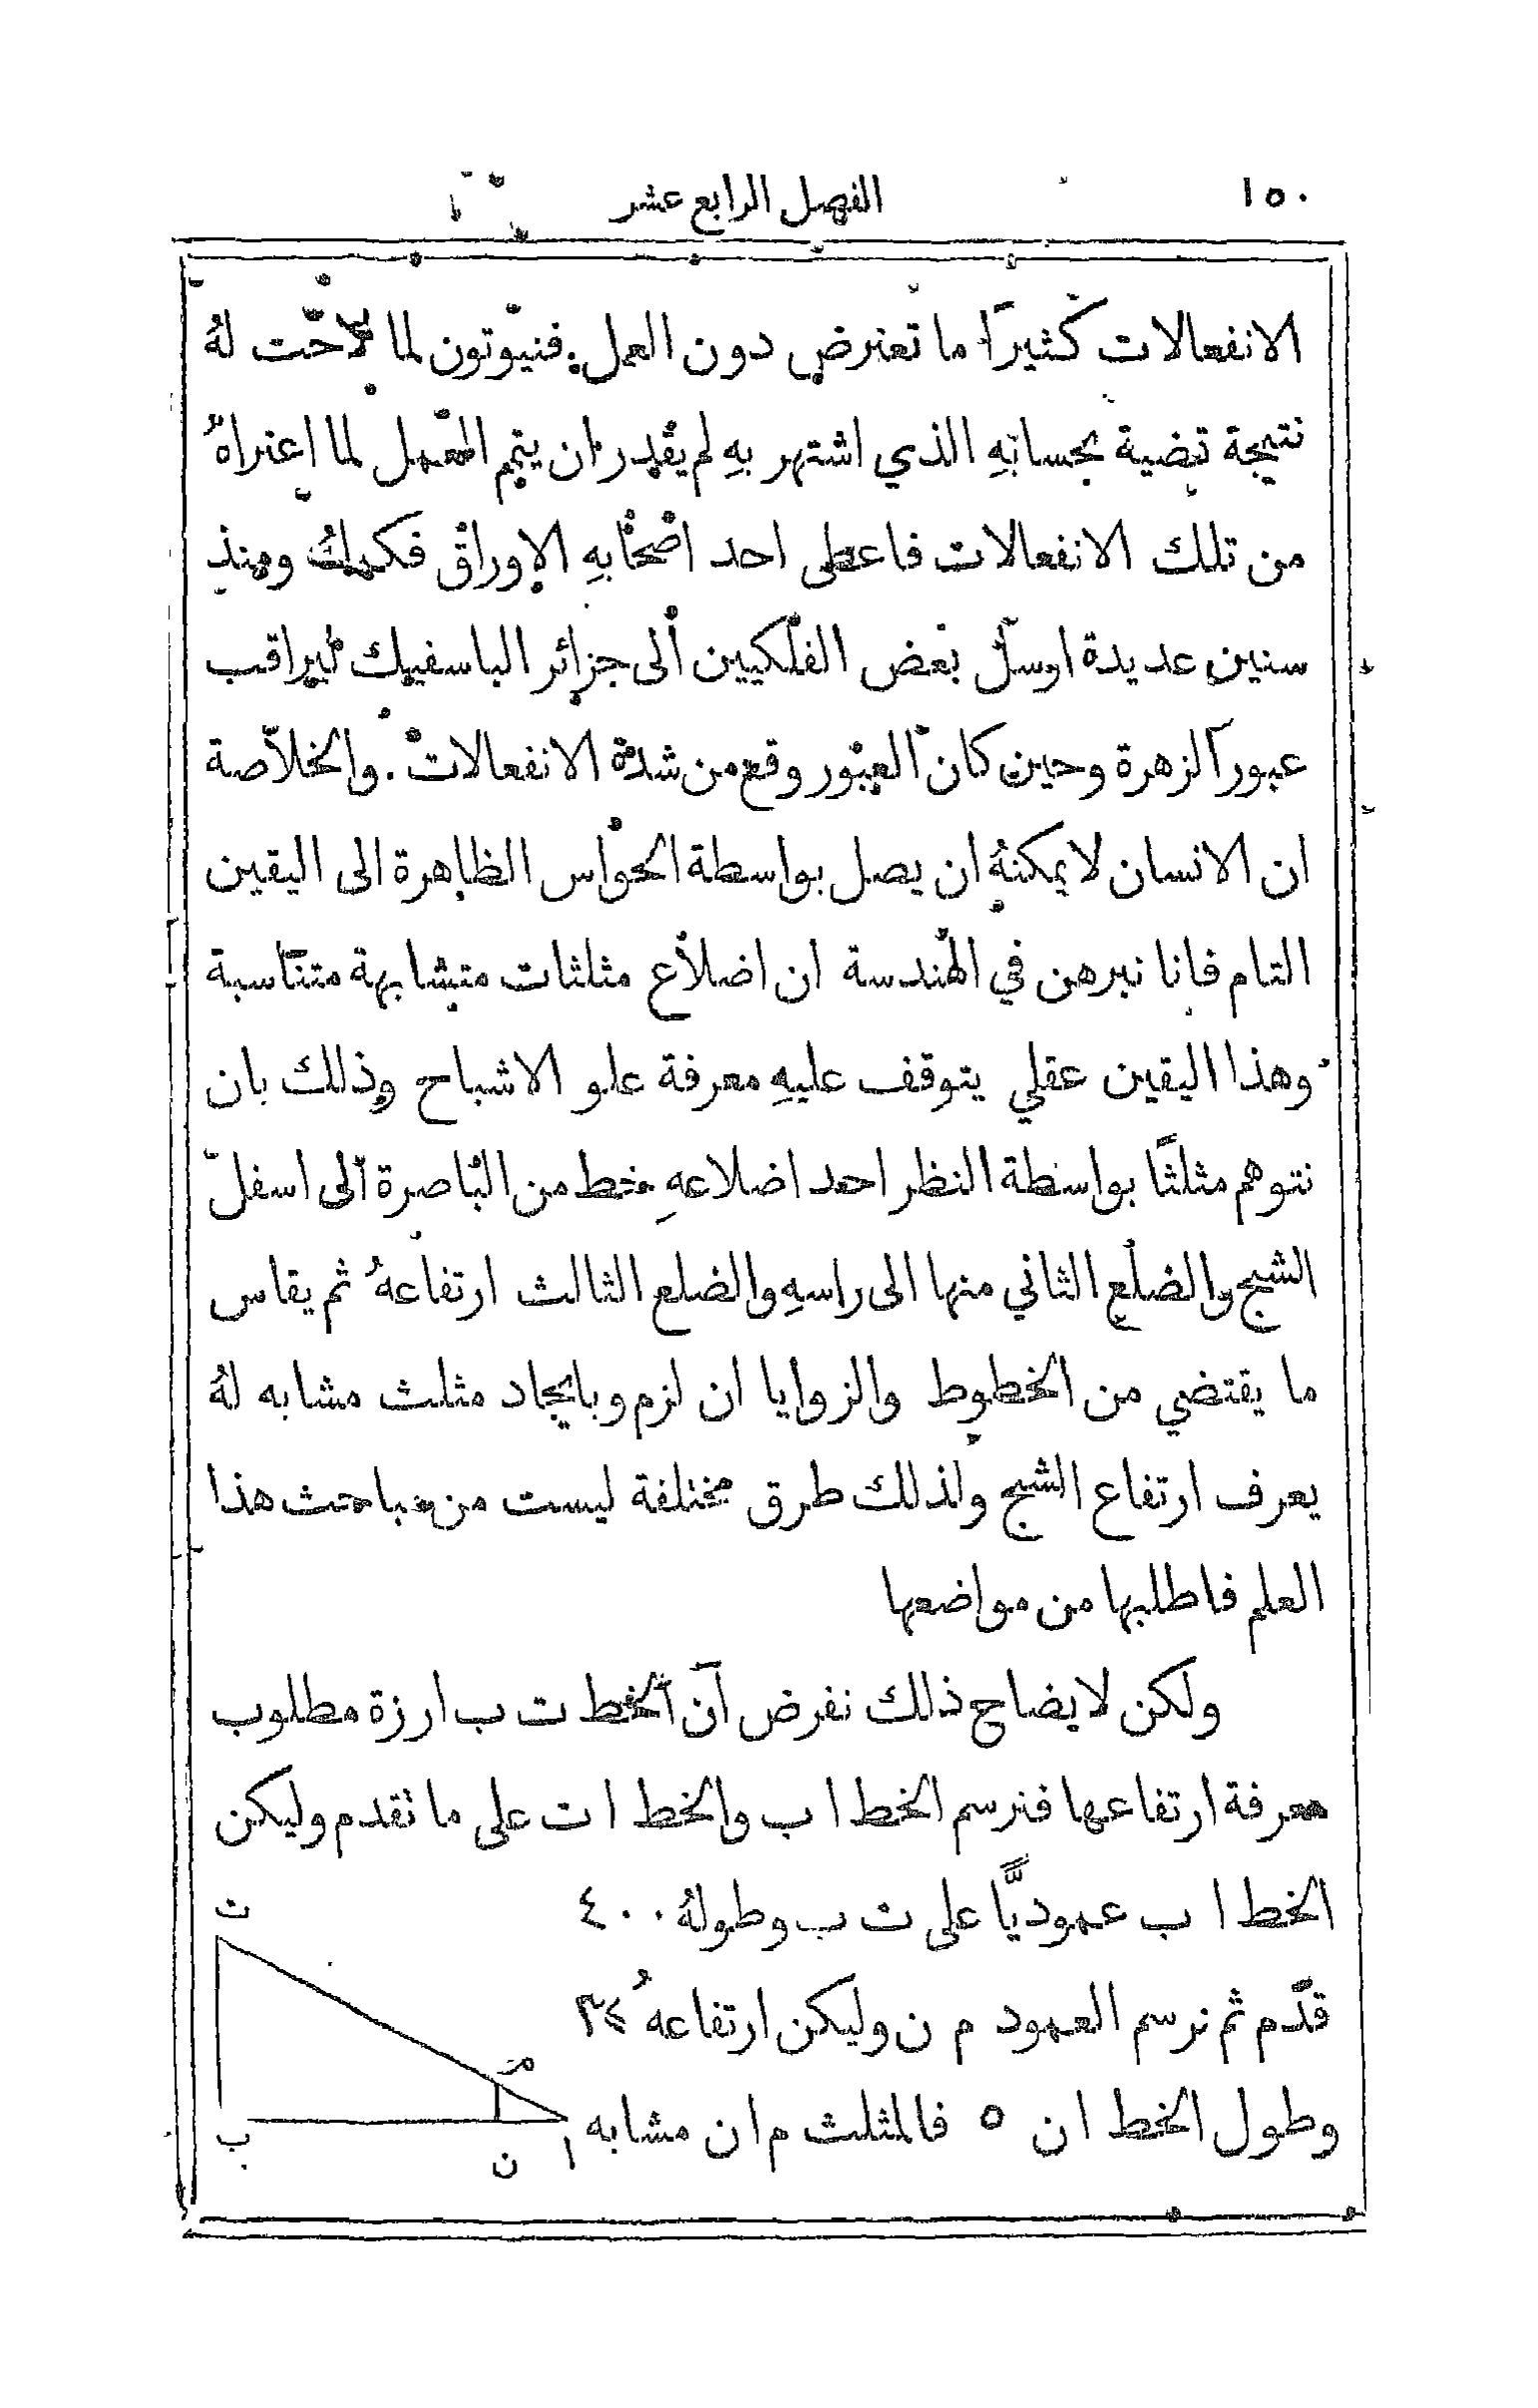 ١٥٠
الفصل الرابع عشر
الانفعالات كثيرًا ما تعترض دون العمل. فنيوتون لما لاحت لهُ
نتيجة قضية بحسابهِ الذي اشتهر بهِ لم يقدر ان يتم العمل لما اعتراهُ
من تلك الانفعالات فاعطى احد اصحابهِ الاوراق فكملت ومنذ
سنين عديدة ارسل بعض الفلكيين الى جزائر الباسفيك ليراقب
عبور الزهرة وحين كان العبور وقع من شدة الانفعالات. والخلاصة
ان الانسان لا يمكنهُ ان يصل بواسطة الحواس الظاهرة الى اليقين
التام فانا نبرهن في الهندسة ان اضلاع مثلثات متشابهة متناسبة
وهذا اليقين عقلي يتوقف عليهِ معرفة علو الاشباح وذلك بان
نتوهم مثلثًا بواسطة النظر احد اضلاعهِ خط من الباصرة الى اسفل
الشبح والضلع الثاني منها الى راسهِ والضلع الثالث ارتفاعهُ ثم يقاس
ما يقتضي من الخطوط والزوايا ان لزم وبايجاد مثلث مشابه لهُ
يعرف ارتفاع الشبح ولذلك طرق مختلفة ليست من مباحث هذا
العلم فاطلبها من مواضعها
ولكن لايضاح ذلك نفرض ان الخط ت ب ارزة مطلوب
معرفة ارتفاعها فنرسم الخط ا ب والخط ا ت على ما تقدم وليكن
الخط ا ب عموديًّا على ت ب وطولهُ ٤٠٠
قدم ثم نرسم العمود م ن وليكن ارتفاعهُ ٣٤
وطول الخط ا ن ٥ فالمثلث م ا ن مشابه
ت
م
ب
ن
ا